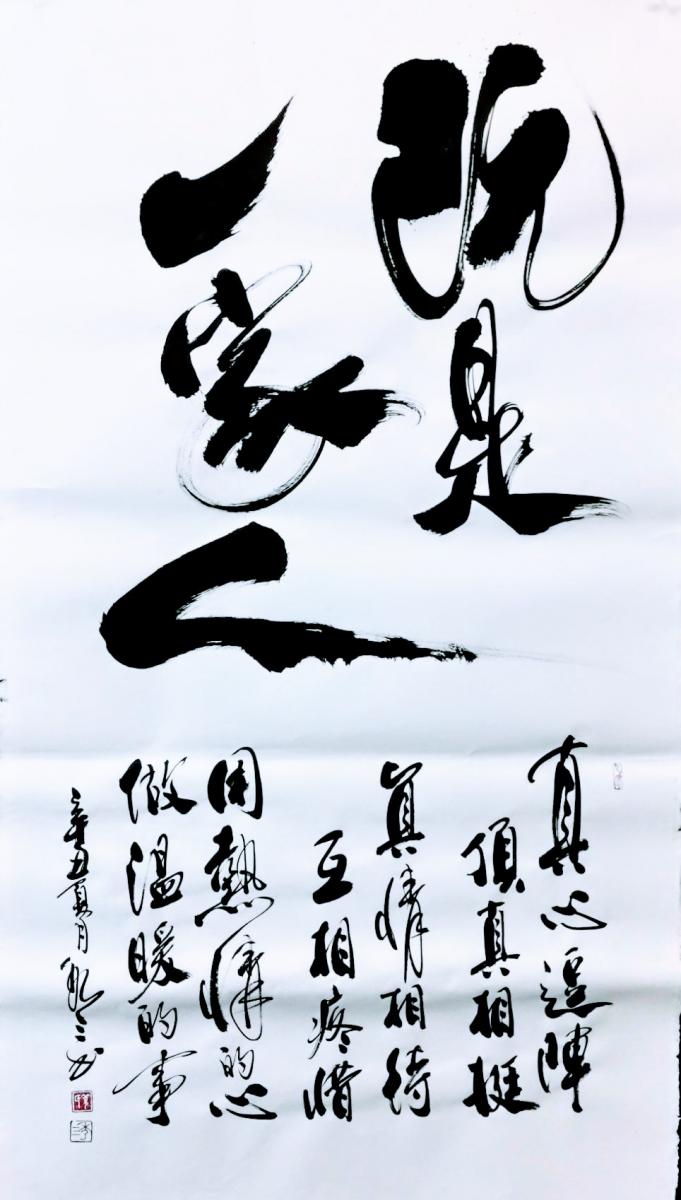 阮是
一家人
真心逗陣
頂真相挺
眞情相待
互相疼惜
用熱情的心
做溫暖的事
辛丑夏月